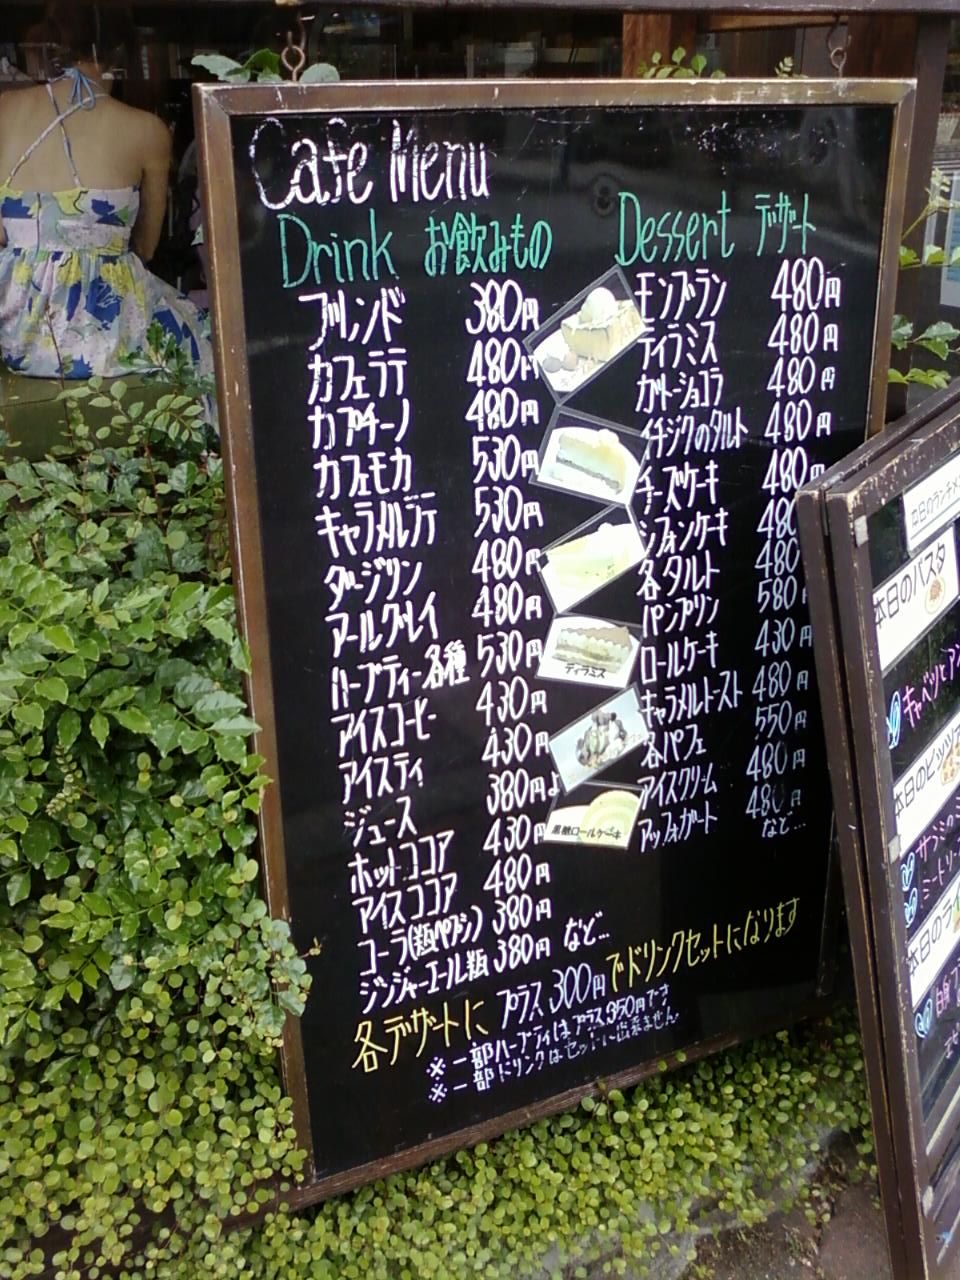 Cafe Menu
Drink お飲みもの
ブレンド 380円
カフェラテ 480円
カプチーノ 480円
カフェモカ 530円
キャラメルラテ 530円
ダージリン 480円
アールグレイ 480円
ハーブティー各種 530円
アイスコーヒー 430円
アイスティ 430円
ジュース 380円よ
ホットココア 430円
アイスココア 480円
コーラ(瓶ペプシ) 380円
ジンジャーエール瓶 380円 など…
Dessert デザート
モンブラン 480円
ティラミス 480円
ガトーショコラ 480円
イチジクのタルト 480円
チーズケーキ 480
シフォンケーキ 480
各タルト 480
パンプリン 580
ロールケーキ 430円
キャラメルトースト 480円
各パフェ 550円
アイスクリーム 480円
アッフォガート 480円
など…
ティラミス
黒糖ロールケーキ
各デザートに プラス300円でドリンクセットになります
※一部ハーブティはプラス350円です
※一部ドリンクはセットに出来ません
本日のランチメ
本日のパスタ
キャベツとアン
本日のピッツァ
サラミの
ミートソー
本日のライ
白身フ